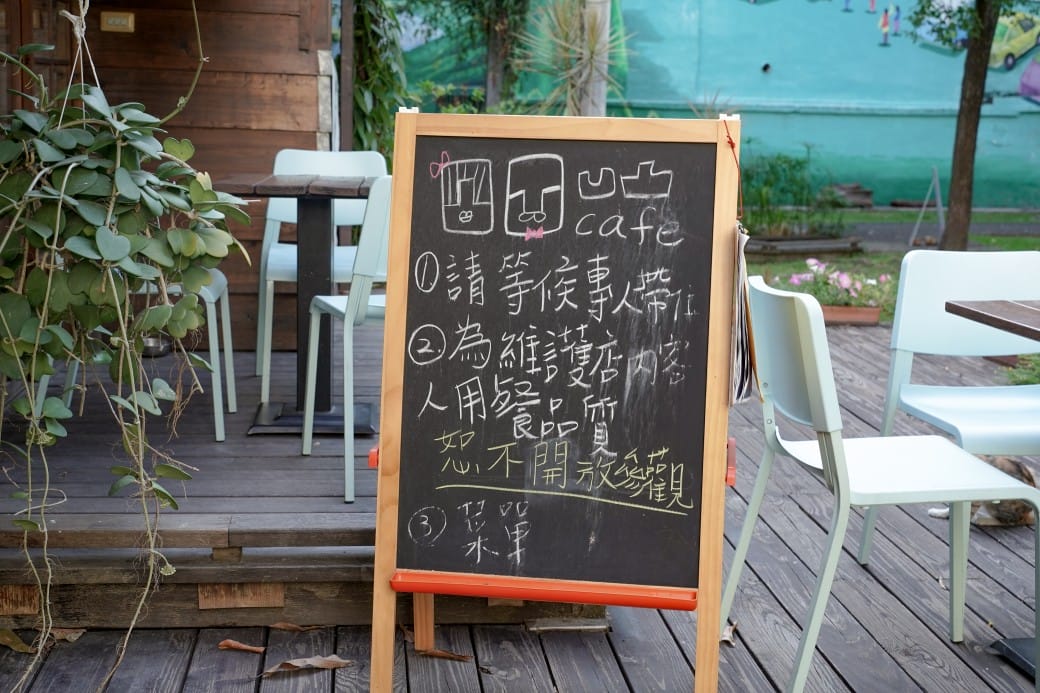 凹凸
cafe
①請等候專人帶位
②為維護店內客
人用餐品質
恕不開放參觀
③ 單